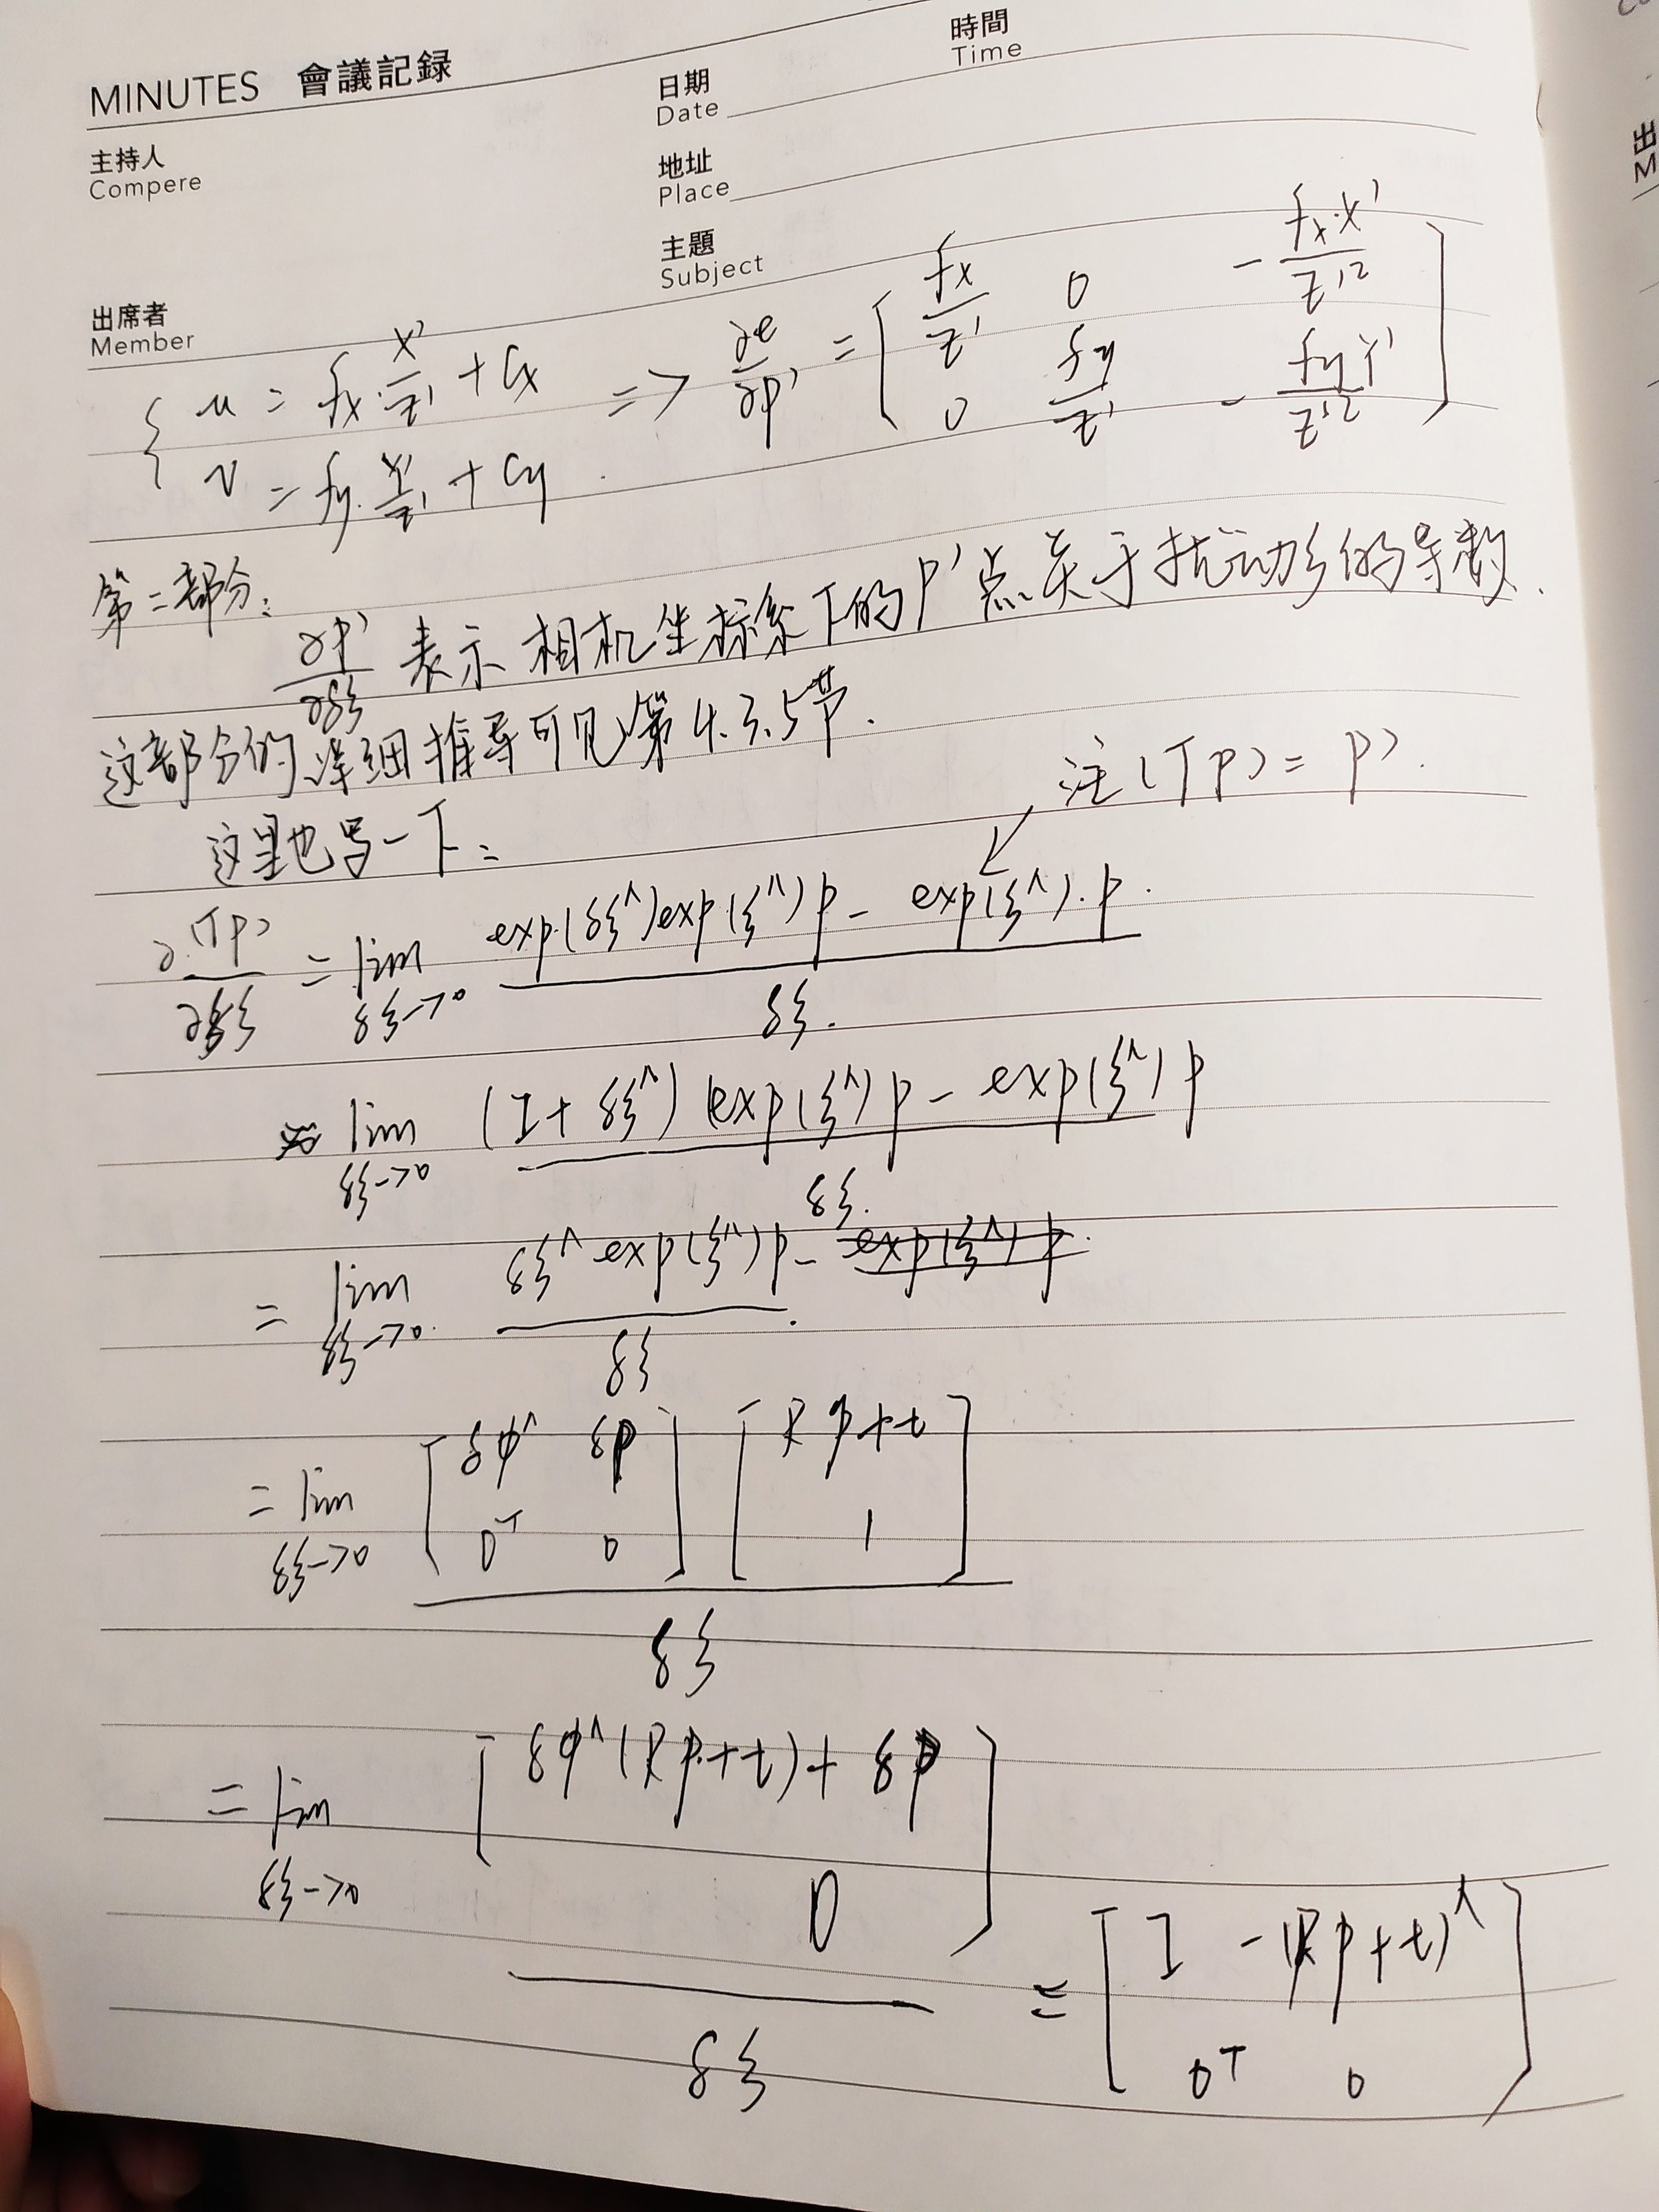 MINUTES 會議記録
日期
Date
時間
Time
主持人
Compere
地址
Place
出席者
Member
主題
Subject
{ u = fx X'/Z' + cx
{ v = fy Y'/Z' + cy .
=> ∂e/∂P' = [ fx/Z' 0 - fx X'/Z'² ; 0 fy/Z' - fy Y'/Z'² ]
第二部分: ∂P'/∂δξ 表示相机坐标系下的P'点关于扰动多的导数).
这部分的详细推导可见第4.3.5节.
这里也写一下:
注 (TP) = P'.
∂(TP)/∂δξ = lim δξ->0 exp(δξ^)exp(ξ^)P - exp(ξ^).P. / δξ.
≈ lim δξ->0 (I + δξ^) exp(ξ^)P - exp(ξ^)P / δξ.
= lim δξ->0. δξ^ exp(ξ^)P. / δξ
= lim δξ->0 [ δφ^ δρ ; 0ᵀ 0 ] [ RP+t ; 1 ] / δξ
= lim δξ->0 [ δφ^(RP+t) + δρ ; 0 ] / δξ = [ I -(RP+t)^ ; 0ᵀ 0 ]
出
M